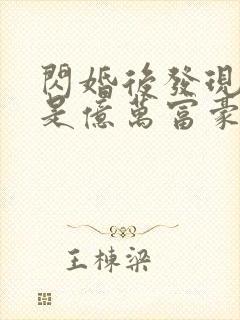 閃婚後發現
是億萬富豪
王棟梁